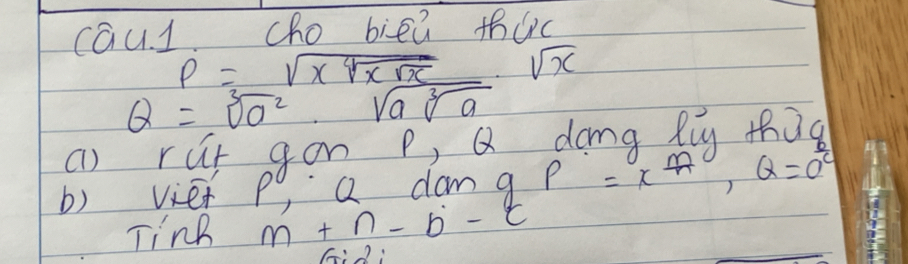 Câu1. Cho biểu thức
P = √x∜x√x . √x
Q = ∛a² . √a∛a
a) rút gọn P, Q dạng lũy thừa
b) Viết P, Q dạng P = x^m/n, Q = a^b/c
Tính m + n - b - c
Giải